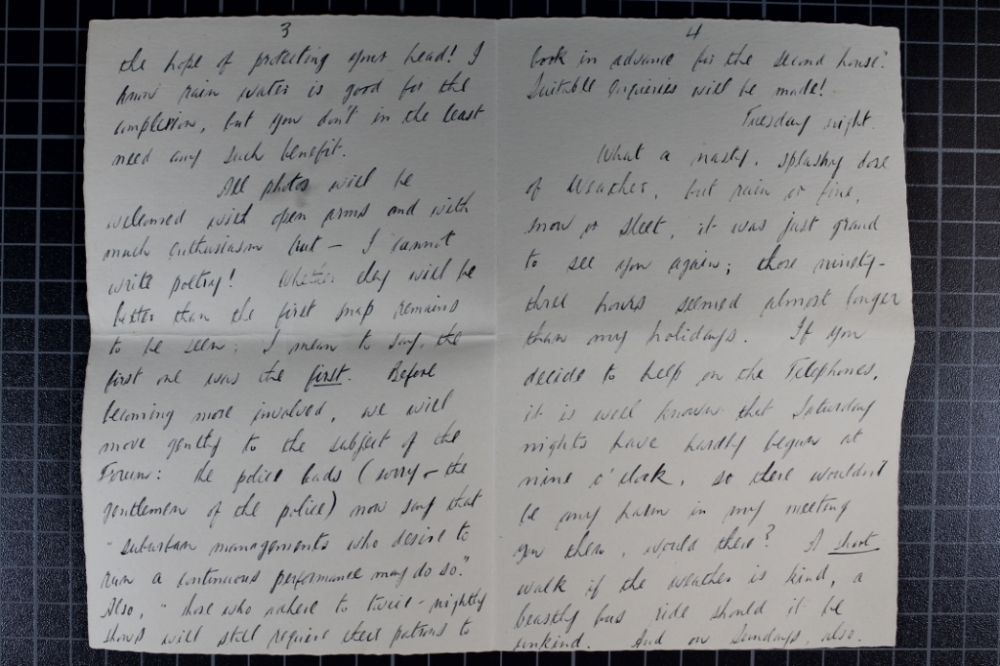 3
the hope of protecting your head! I
know rain water is good for the
complexion, but you don't in the least
need any such benefit.
All photos will be
welcomed with open arms and with
much enthusiasm but – I cannot
write poetry! Whether they will be
better than the first snap remains
to be seen; I mean to say, the
first one was the first. Before
becoming more involved, we will
move gently to the subject of the
Forum: the police lads (sorry – the
gentlemen of the police) now say that
"suburban managements who desire to
run a continuous performance may do so."
Also, "those who adhere to twice-nightly
shows will still require their patrons to
4
book in advance for the second house."
Suitable enquiries will be made!
Tuesday night.
What a nasty, splashy dose
of weather, but rain or fine,
snow or sleet, it was just grand
to see you again; those ninety-
three hours seemed almost longer
than my holidays. If you
decide to help on the Telephones,
it is well known that Saturday
nights have hardly begun at
nine o'clock, so there wouldn't
be any harm in my meeting
you then, would there? A short
walk if the weather is kind, a
beastly bus ride should it be
unkind. And on Sundays, also.